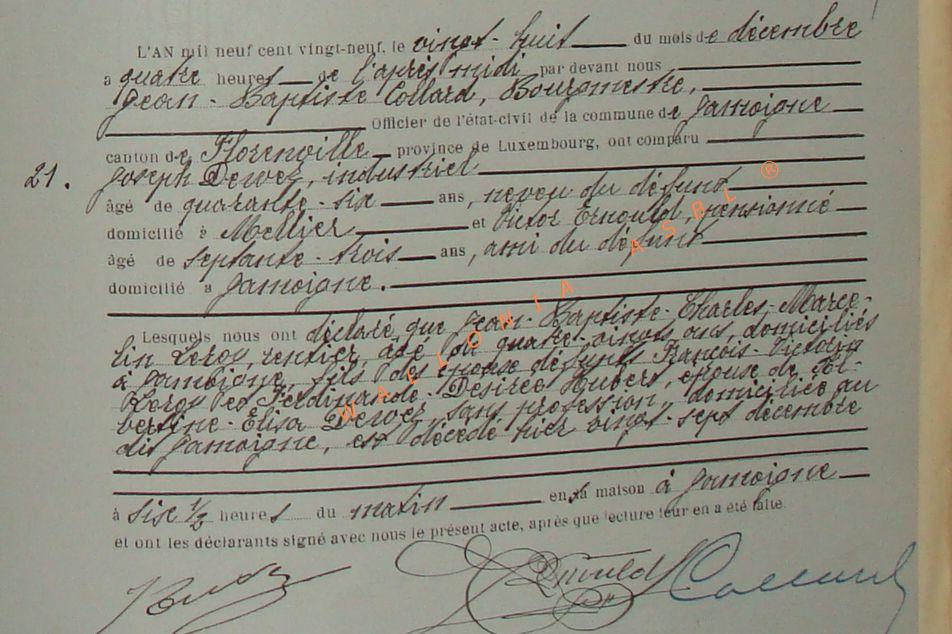 L'AN mil neuf cent vingt-neuf, le vingt-huit du mois de décembre
a quatre heures de l'après midi par devant nous
Jean-Baptiste Collard, Bourgmestre,
Officier de l'état-civil de la commune de Jamoigne
canton de Florenville province de Luxembourg, ont comparu
21. Joseph Dewez, industriel
âgé de quarante-six ans, neveu du défunt
domicilié à Mellier et Victor Ernould, pensionné
âgé de septante-trois ans, ami du défunt
domicilié a Jamoigne.
Lesquels nous ont déclaré que Jean-Baptiste-Charles-Marce-
lin Leroy, rentier, âgé de quatre-vingts ans, domiciliés
à Jamoigne, fils des époux défunts François-Victorin
Leroy et Ferdinande-Désirée Hubert, époux de Bol-
bertine-Elisa Dewez, sans profession, domiciliée au
dit Jamoigne, est décédé hier vingt-sept décembre
à six ½ heures du matin en sa maison à Jamoigne
et ont les déclarants signé avec nous le présent acte, après que lecture leur en a été faite
Ernould Collard
WALLONIA ASBL ®